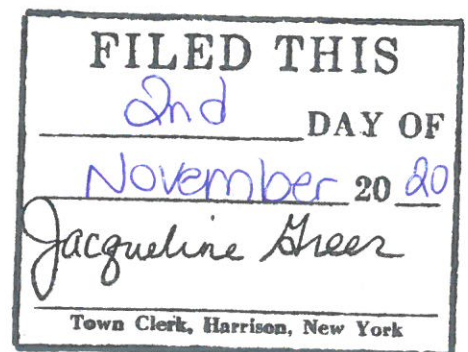 FILED THIS
2nd DAY OF
November 20 20
Jacqueline Greer
Town Clerk, Harrison, New York